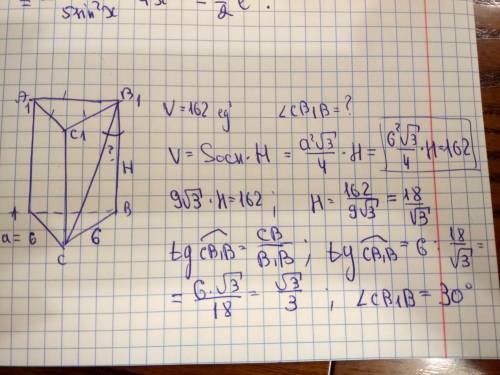 sin²x + x = π/2 e.
A1 B1
C1
V = 162 ед³ ∠CB₁B = ?
? H
V = Sосн·H = a²√3/4 · H = 6²√3/4 · H = 162
9√3 · H = 162 ; H = 162/9√3 = 18/√3
A B
a = 6 6
C
tg CB₁B = CB/B₁B ; tg CB₁B = 6 : 18/√3 =
= 6·√3/18 = √3/3 ; ∠CB₁B = 30°